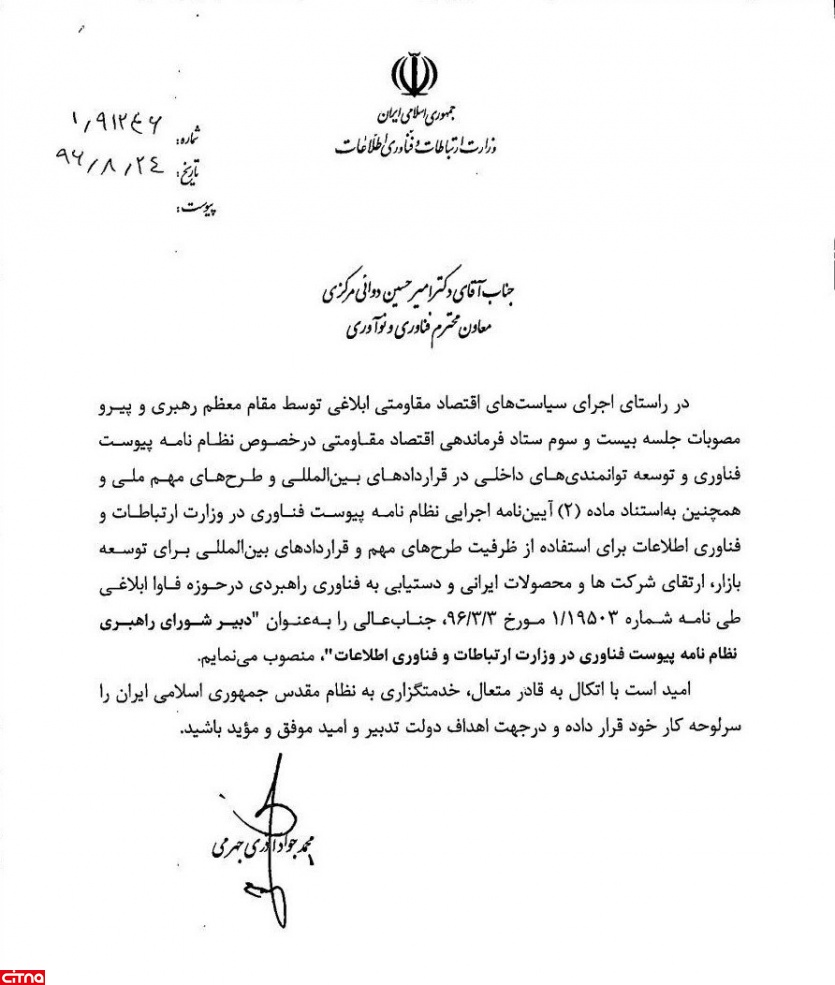 جمهوری اسلامی ایران
وزارت ارتباطات و فناوری اطلاعات
شماره: ۱٫۹۱۲۴۶
تاریخ: ۹۶٫۸٫۲۴
پیوست:
جناب آقای دکتر امیرحسین دوائی مرکزی
معاون محترم فناوری و نوآوری
در راستای اجرای سیاست‌های اقتصاد مقاومتی ابلاغی توسط مقام معظم رهبری و پیرو
مصوبات جلسه بیست و سوم ستاد فرماندهی اقتصاد مقاومتی درخصوص نظام نامه پیوست
فناوری و توسعه توانمندی‌های داخلی در قراردادهای بین‌المللی و طرح‌های مهم ملی و
همچنین به‌استناد ماده (۲) آیین‌نامه اجرایی نظام نامه پیوست فناوری در وزارت ارتباطات و
فناوری اطلاعات برای استفاده از ظرفیت طرح‌های مهم و قراردادهای بین‌المللی برای توسعه
بازار، ارتقای شرکت ها و محصولات ایرانی و دستیابی به فناوری راهبردی درحوزه فاوا ابلاغی
طی نامه شماره ۱/۱۹۵۰۳ مورخ ۹۶/۳/۳، جناب‌عالی را به‌عنوان "دبیر شورای راهبری
نظام نامه پیوست فناوری در وزارت ارتباطات و فناوری اطلاعات"، منصوب می‌نمایم.
امید است با اتکال به قادر متعال، خدمتگزاری به نظام مقدس جمهوری اسلامی ایران را
سرلوحه کار خود قرار داده و درجهت اهداف دولت تدبیر و امید موفق و مؤید باشید.
محمد جواد آذری جهرمی
citna